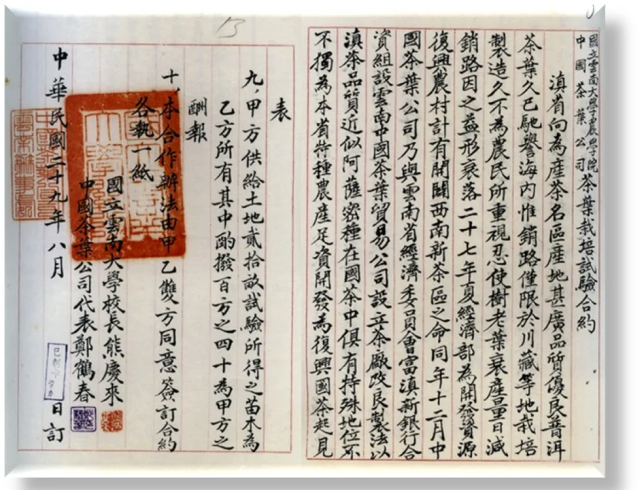 國立雲南大學農學院
中國茶葉公司
茶葉栽培試驗合約
滇省向為產茶名區產地甚廣品質優良普洱
茶葉久已馳譽海內惟銷路僅限於川藏等地栽培
製造久不為農民所重視忍使樹老葉衰產量日減
銷路因之益形衰落二十七年夏經濟部為開發資源
復興農村計有開闢西南新茶區之命同年十二月中
國茶葉公司乃與雲南省經濟委員會富滇新銀行合
資組設雲南中國茶葉貿易公司設立茶廠改良製法以
滇茶品質近似阿薩密種在國茶中俱有特殊地位不
不獨為本省特種農產足資開發為復興國茶起見
表
九、甲方供給土地貳拾畝試驗所得之苗木為
乙方所有其中酌撥百方之四十為甲方之
酬報
十、本合作辦法由甲乙雙方同意簽訂合約
各執一紙
國立雲南大學校長熊慶來
中國茶葉公司代表鄭鶴春
中華民國二十九年八月 日訂